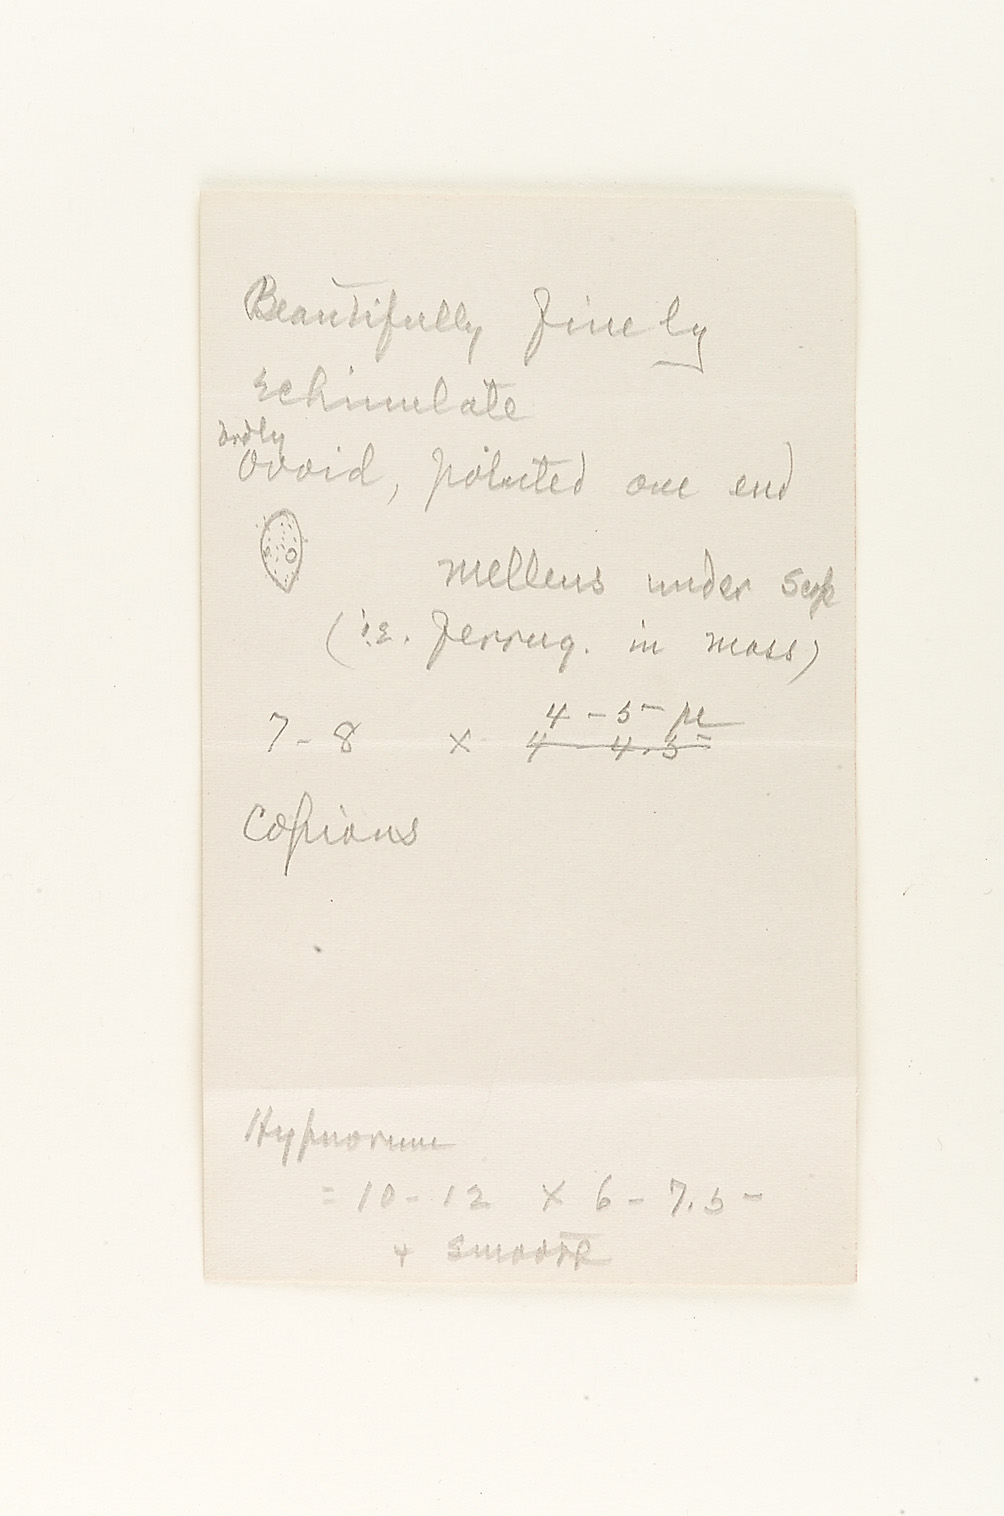 Beautifully finely
echinulate
brdly
ovoid, pointed one end
melleus under scope
(i.e. ferrug. in mass)
4-5 µ
7-8 x 4-4.5
Copious
Hypnorum
= 10-12 x 6-7.5
+ smooth